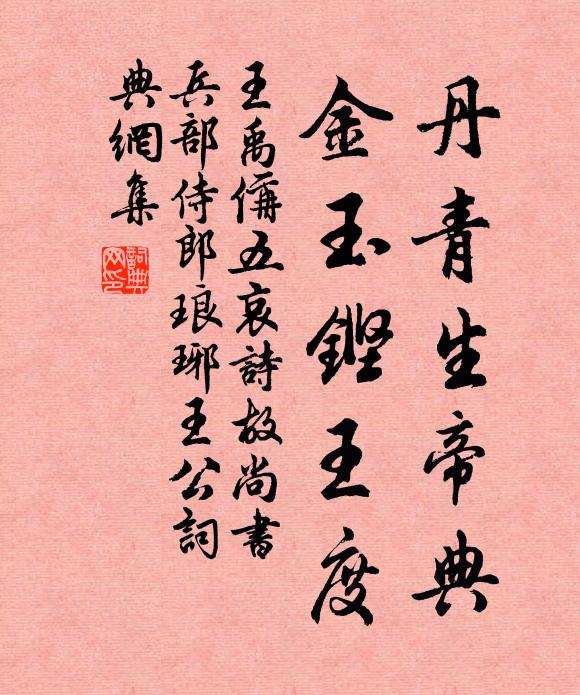 丹青生帝典
金玉鏗王度
王禹偁五哀詩故尚書
兵部侍郎琅琊王公詞
典網集
詞典網印